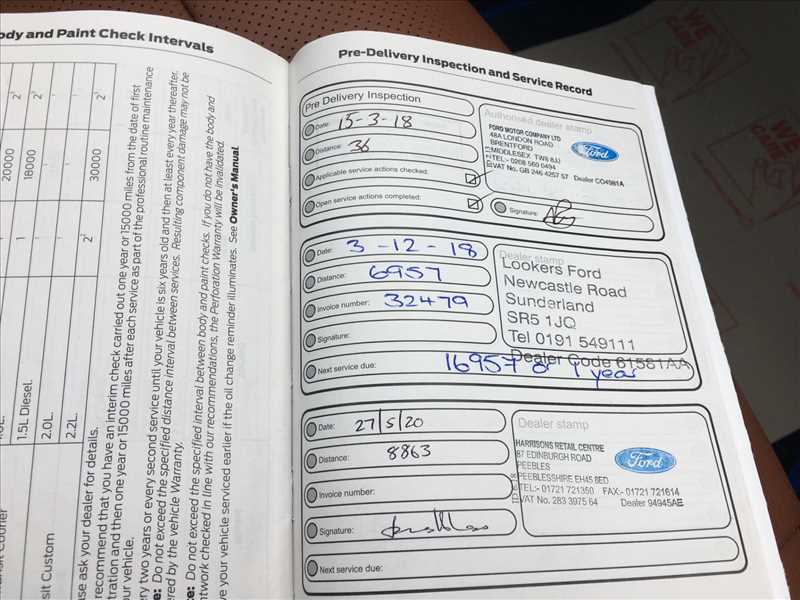 ody and Paint Check Intervals
20000
2¹
18000
2¹
30000
2¹
1
2¹
1.5L Diesel.
2.0L.
2.2L.
sit Custom
se ask your dealer for details.
recommend that you have an interim check carried out one year or 15000 miles from the date of first
tration and then one year or 15000 miles after each service as part of the professional routine maintenance
ur vehicle.
ry two years or every second service until your vehicle is six years old and then at least every year thereafter.
Do not exceed the specified distance interval between services. Resulting component damage may not be
ered by the vehicle Warranty.
Do not exceed the specified interval between body and paint checks. If you do not have the body and
ntwork checked in line with our recommendations, the Perforation Warranty will be invalidated.
ve your vehicle serviced earlier if the oil change reminder illuminates. See Owner's Manual.
Pre-Delivery Inspection and Service Record
Pre Delivery Inspection
Date: 15-3-18
Distance: 36
Applicable service actions checked:
Open service actions completed:
Authorised dealer stamp
FORD MOTOR COMPANY LTD
48A LONDON ROAD
BRENTFORD
MIDDLESEX TW8 8JJ
TEL:- 0208 560 0494
VAT No. GB 246 4257 57 Dealer CO4981A
Ford
Signature:
Date: 3-12-18
Distance: 6957
Invoice number: 32479
Signature:
Next service due: 16957 or 1 year
Dealer stamp
Lookers Ford
Newcastle Road
Sunderland
SR5 1JQ
Tel 0191 549111
Dealer Code 61581AA
Date: 27/5/20
Distance: 8863
Invoice number:
Signature:
Next service due:
Dealer stamp
HARRISONS RETAIL CENTRE
87 EDINBURGH ROAD
PEEBLES
PEEBLESSHIRE EH45 8ED
TEL:- 01721 721350 FAX:- 01721 721614
VAT No. 283 3975 64 Dealer 94945AE
Ford